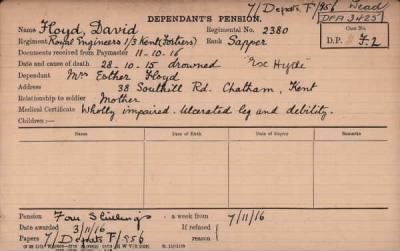 7/Depots/F/956 Dead
DEPENDANT'S PENSION.
DFA 3425
Name Floyd, David Regimental No. 2380
Case No.
Regiment Royal Engineers 1/3 Kent (Fortress) Rank Sapper
D.P. F.2
Documents received from Paymaster 11-10-16
Date and cause of death 28-10-15 drowned "Ex Hythe"
Dependant Mrs Esther Floyd
Address 38 Southill Rd. Chatham, Kent
Relationship to soldier Mother
Medical Certificate Wholly impaired. Ulcerated leg and debility.
Children:—
Names Date of Birth. Date of Expiry Remarks.
Pension Four Shillings a week from 7/11/16
Date awarded 3/11/16 If refused
Papers 7/Depots F/956 reason